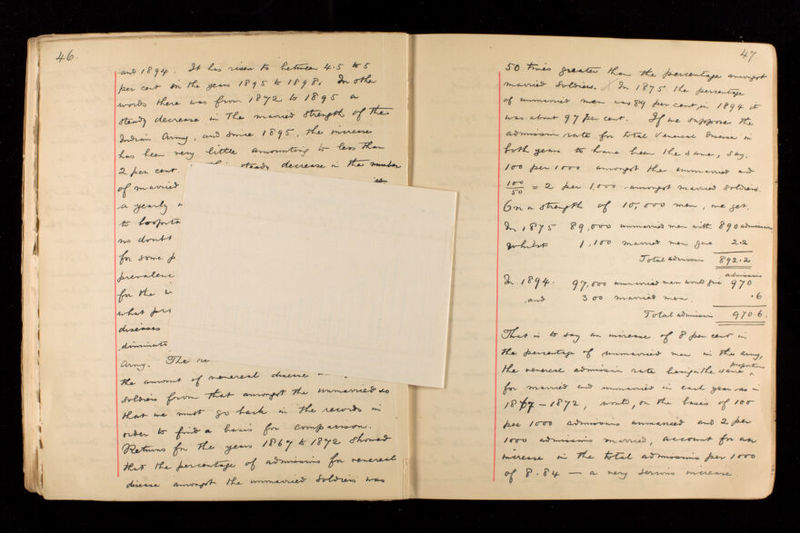 46.
and 1894. It has risen to between 4.5 to 5
per cent in the years 1895 to 1898. In other
words there was from 1872 to 1895 a
steady decrease in the married strength of the
Indian Army, and since 1895, the increase
has been very little amounting to less than
2 per cent. steady decrease in the number
of married
a yearly
to
no doubt
for some
prevalence
for the
what
diseases
diminish
Army. The
the amount of venereal disease
soldiers from that amongst the unmarried so
that we must go back in the records in
order to find a basis for comparison.
Returns for the years 1867 to 1872 showed
that the percentage of admissions for venereal
disease amongst the unmarried soldiers was
47
50 times greater than the percentage amongst
married soldiers. In 1875 the percentage
of unmarried men was 89 per cent, in 1894 it
was about 97 per cent. If we suppose the
admission rate for total venereal disease in
both years to have been the same, say,
100 per 1000 amongst the unmarried and
100/50 = 2 per 1,000 amongst married soldiers.
On a strength of 10,000 men, we get.
In 1875 89,000 unmarried men with 890 admissions
whilst 1,100 married men give 2.2
Total admissions 892.2
admissions
In 1894. 97,000 unmarried men would give 970
and 300 married men .6
Total admissions 970.6
That is to say an increase of 8 per cent in
the percentage of unmarried men in the army,
the venereal admission rate being in the same proportion
for married and unmarried in each year as in
1867–1872, would, on the basis of 100
per 1000 admissions unmarried and 2 per
1000 admissions married, account for an
increase in the total admissions per 1000
of 8.84 — a very serious increase